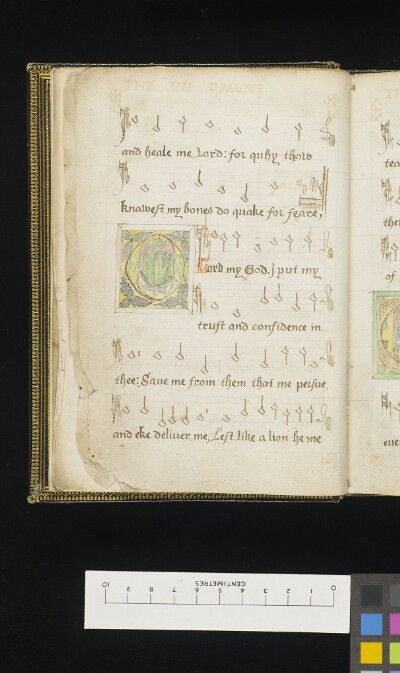 and heale me, Lord: for quhy thow
knawest my bones do quake for feare,
Lord my God, I put my
trust and confidence in
thee: Save me from them that me persue
and eke deliver me, Lest like a lion he me
tea
the
of
eve
CENTIMETRES
10 9 8 7 6 5 4 3 2 1 0